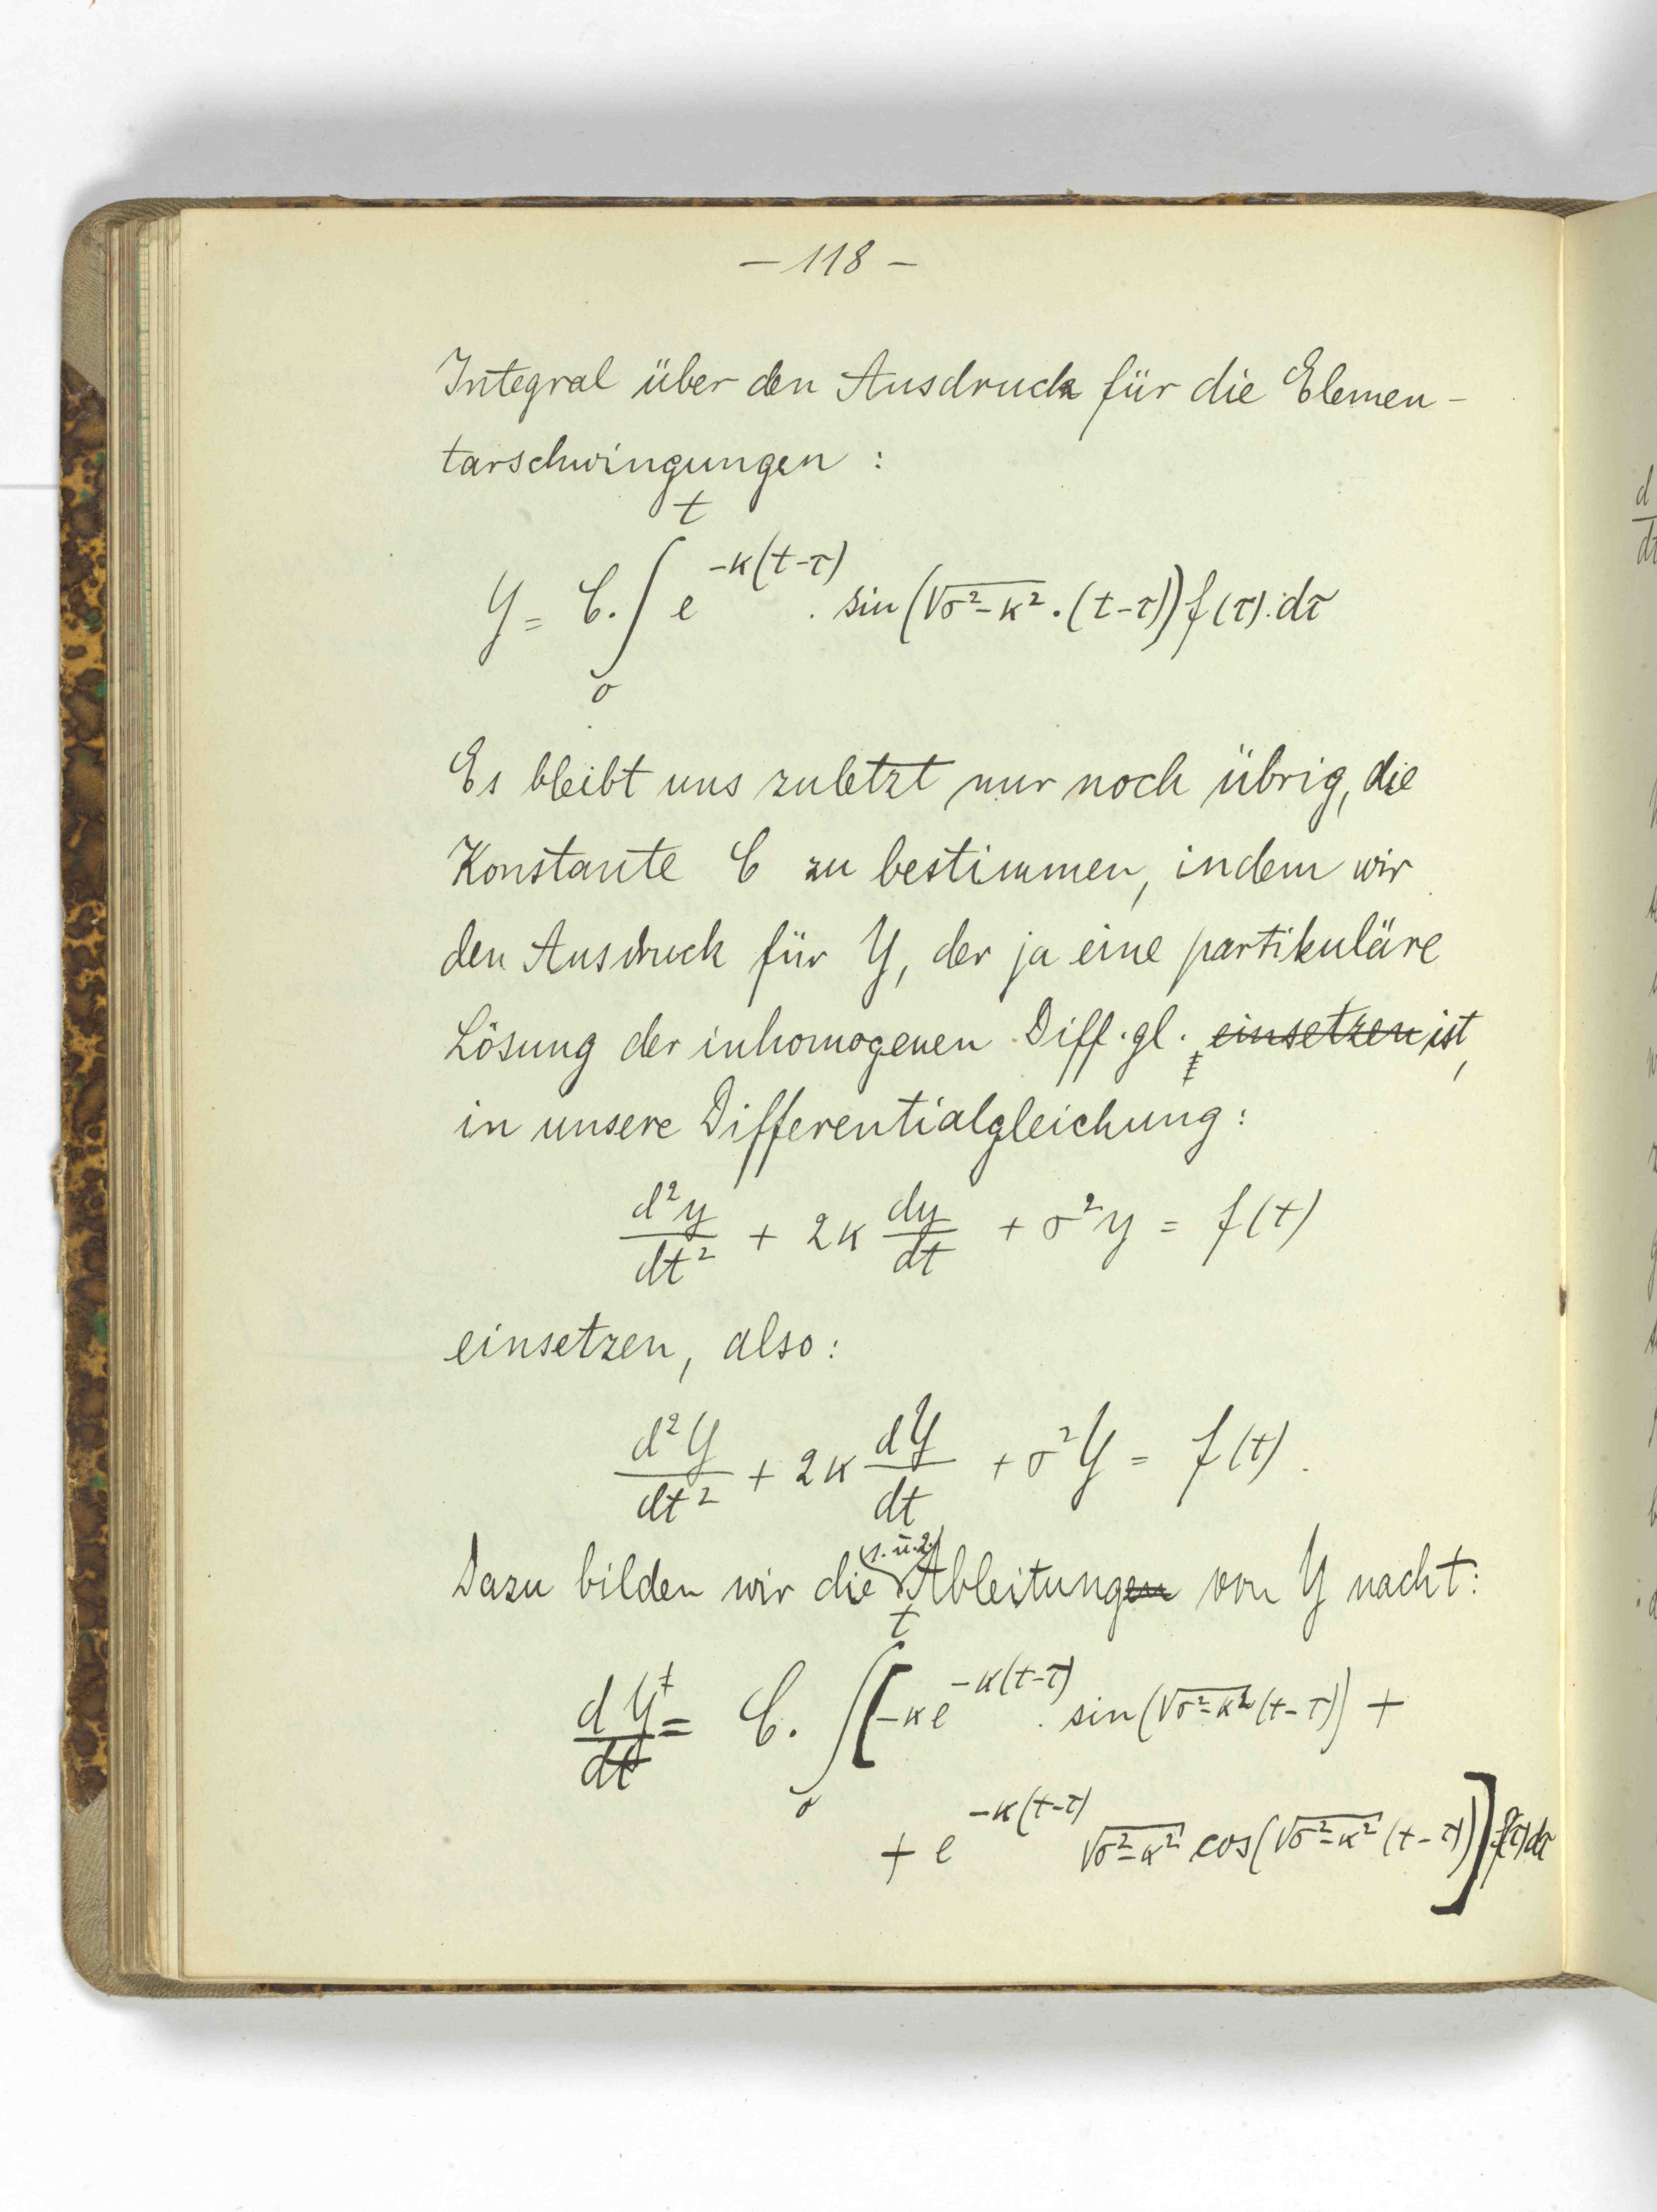 – 118 –
Integral über den Ausdruck für die Elemen-
tarschwingungen :
Y = C · ∫₀ᵗ e^{-κ(t-τ)} · sin(√(σ²-κ²) · (t-τ)) f(τ) · dτ
Es bleibt uns zuletzt nur noch übrig, die
Konstante C zu bestimmen, indem wir
den Ausdruck für Y, der ja eine partikuläre
Lösung der inhomogenen Diff.gl. einsetzen ist,
in unsere Differentialgleichung:
d²y/dt² + 2κ dy/dt + σ²y = f(t)
einsetzen, also:
d²Y/dt² + 2κ dY/dt + σ²Y = f(t).
Dazu bilden wir die (1. u. 2.) Ableitungen von Y nach t:
dY/dt = C · ∫₀ᵗ [-κe^{-κ(t-τ)} · sin(√(σ²-κ²)(t-τ)) +
+ e^{-κ(t-τ)} √(σ²-κ²) cos(√(σ²-κ²)(t-τ))] f(τ)dτ